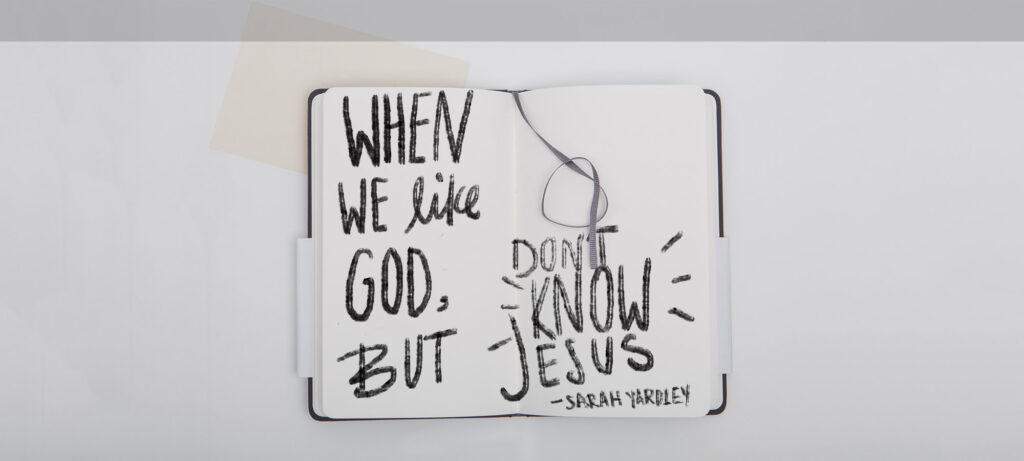 WHEN
WE like
GOD,
BUT
DON'T
KNOW
JESUS
-SARAH YARDLEY